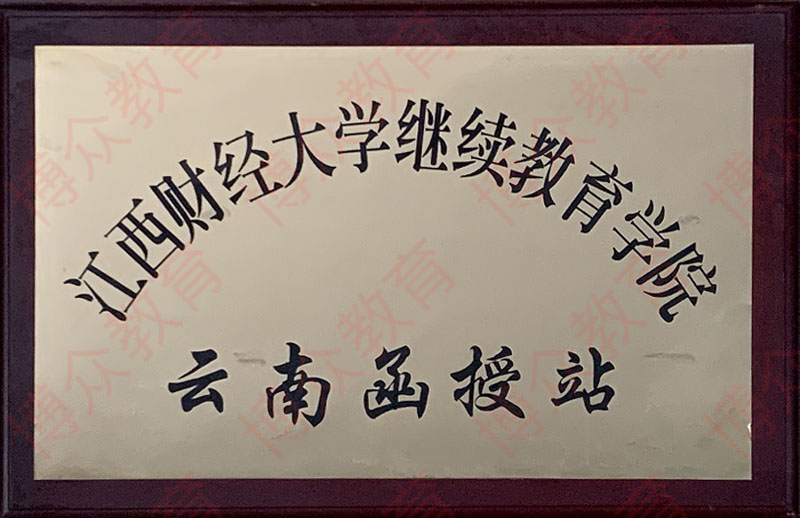 江西财经大学继续教育学院
云南函授站
博众教育
博众教育
博众教育
博众教育
博众教育
博众教育
博众教育
博众教育